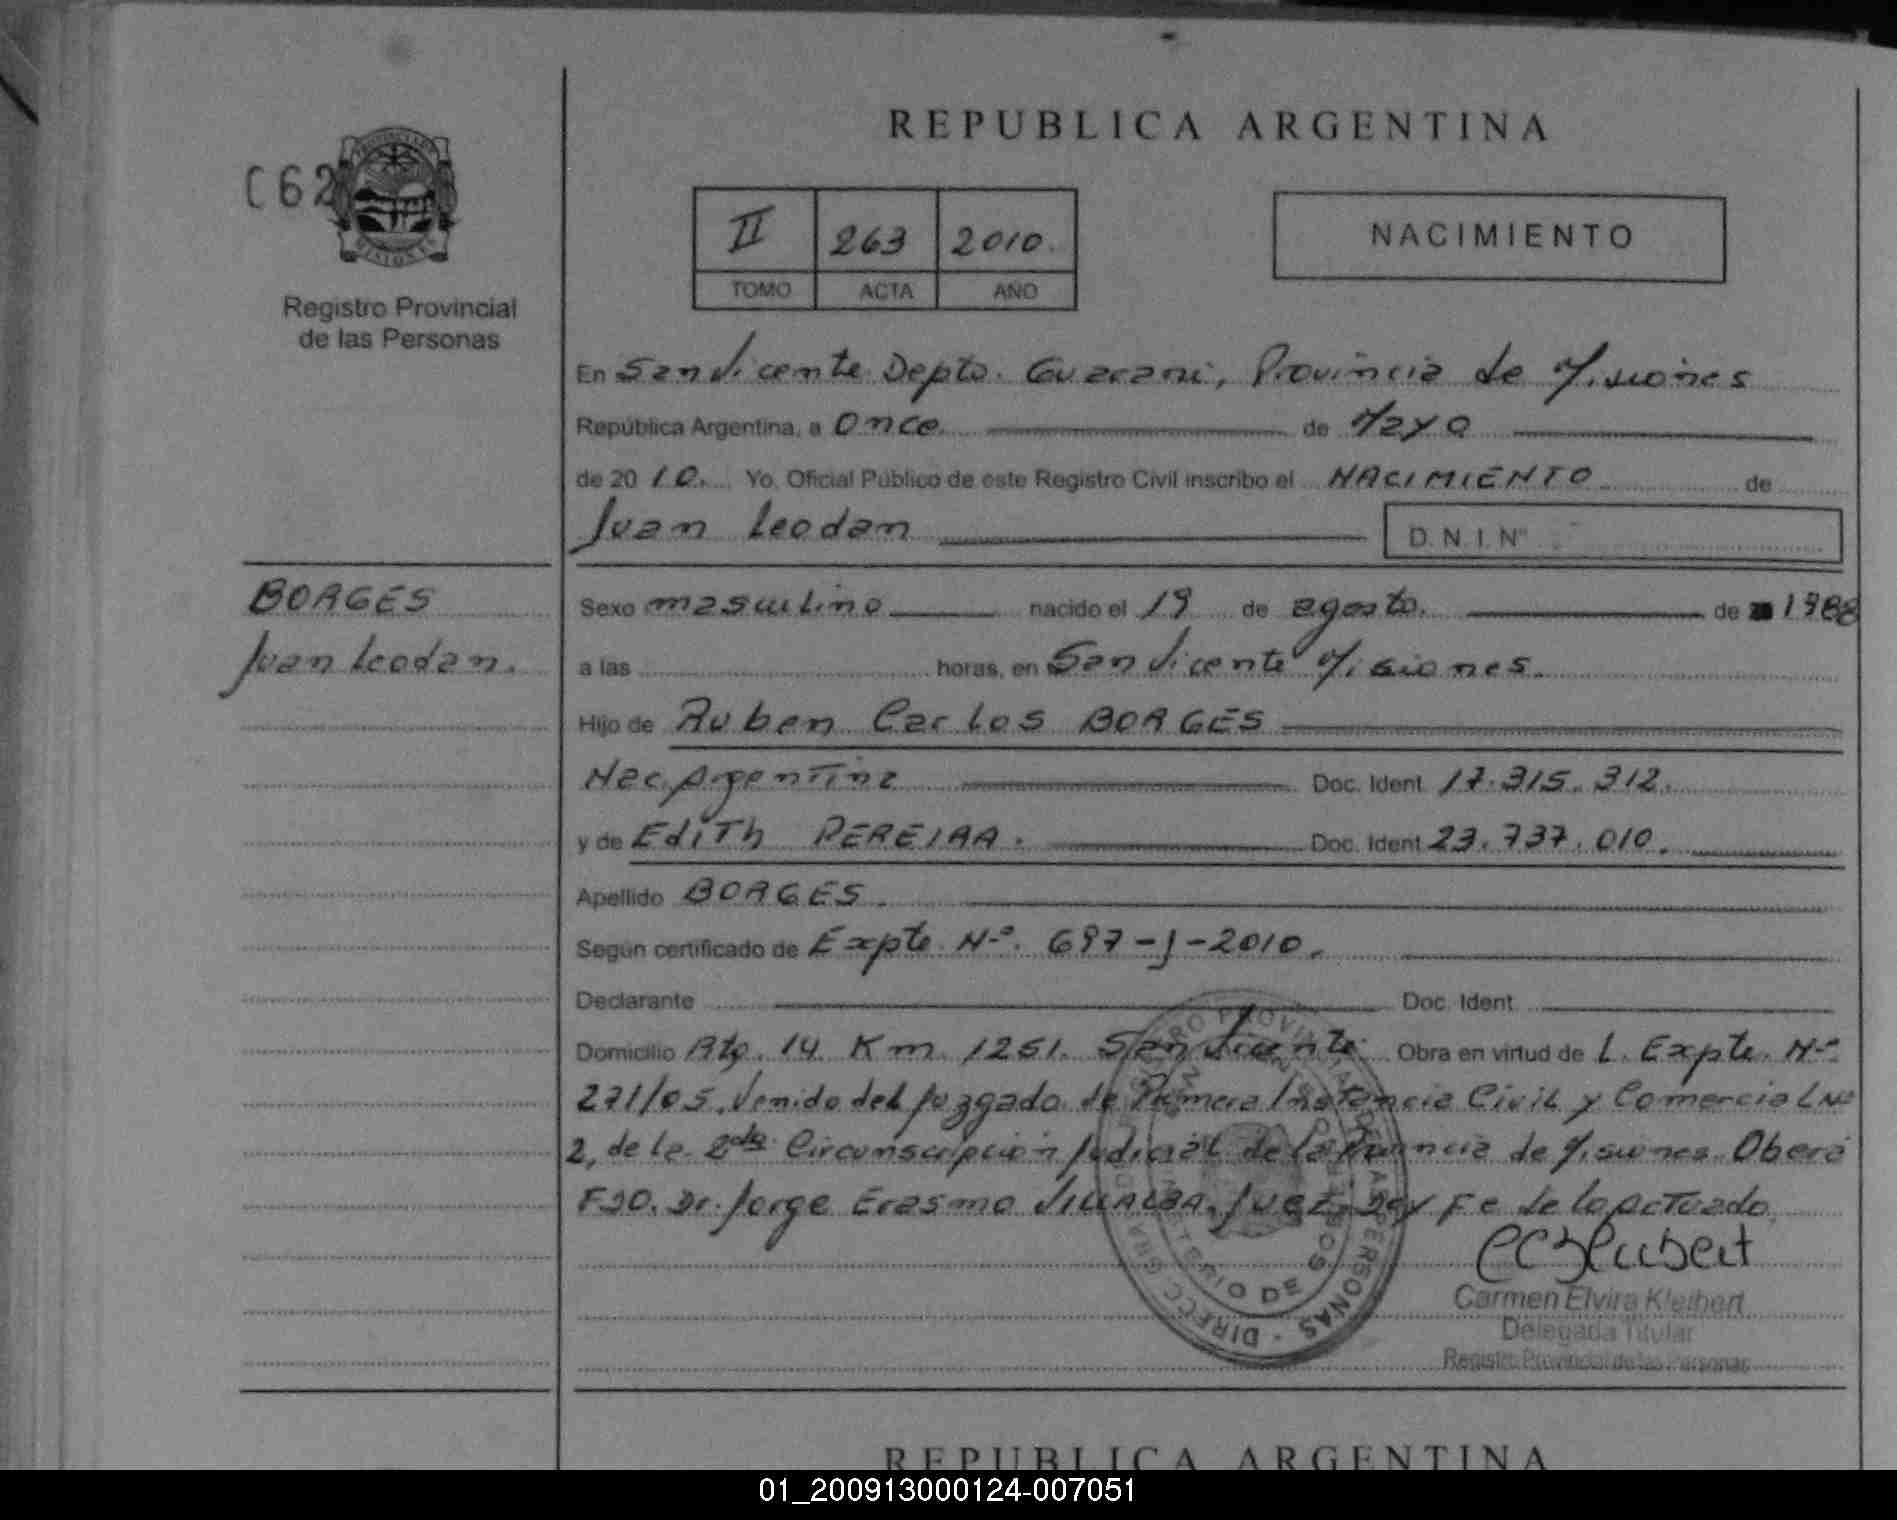 REPUBLICA ARGENTINA
C62
Registro Provincial
de las Personas
II 263 2010.
TOMO ACTA AÑO
NACIMIENTO
En San Vicente Depto. Guarani, Provincia de Misiones
República Argentina, a Once de Mayo
de 20 10. Yo, Oficial Público de este Registro Civil inscribo el NACIMIENTO de
Juan Leodan
D. N. I. Nº
BORGES
Juan Leodan.
Sexo masculino nacido el 19 de agosto. de 1988
a las horas, en San Vicente Misiones.
Hijo de Ruben Carlos BORGES
Nac. Argentina Doc. Ident. 17.315.312.
y de Edith PEREIRA. Doc. Ident 23.737.010.
Apellido BORGES.
Según certificado de Expte Nº. 697-J-2010.
Declarante Doc. Ident.
Domicilio Rta. 14 Km 1251. San Vicente. Obra en virtud de L. Expte. Nº
271/05. Venido del Juzgado de Primera Instancia Civil y Comercial Nº
2, de la 2da Circunscripción Judicial de la Provincia de Misiones Obera
FDO. Dr. Jorge Erasmo VILLALBA. Juez. Doy Fe de lo actuado.
Carmen Elvira Kleibert
Delegada Titular
Registro Provincial de las Personas
REPUBLICA ARGENTINA
01_200913000124-007051